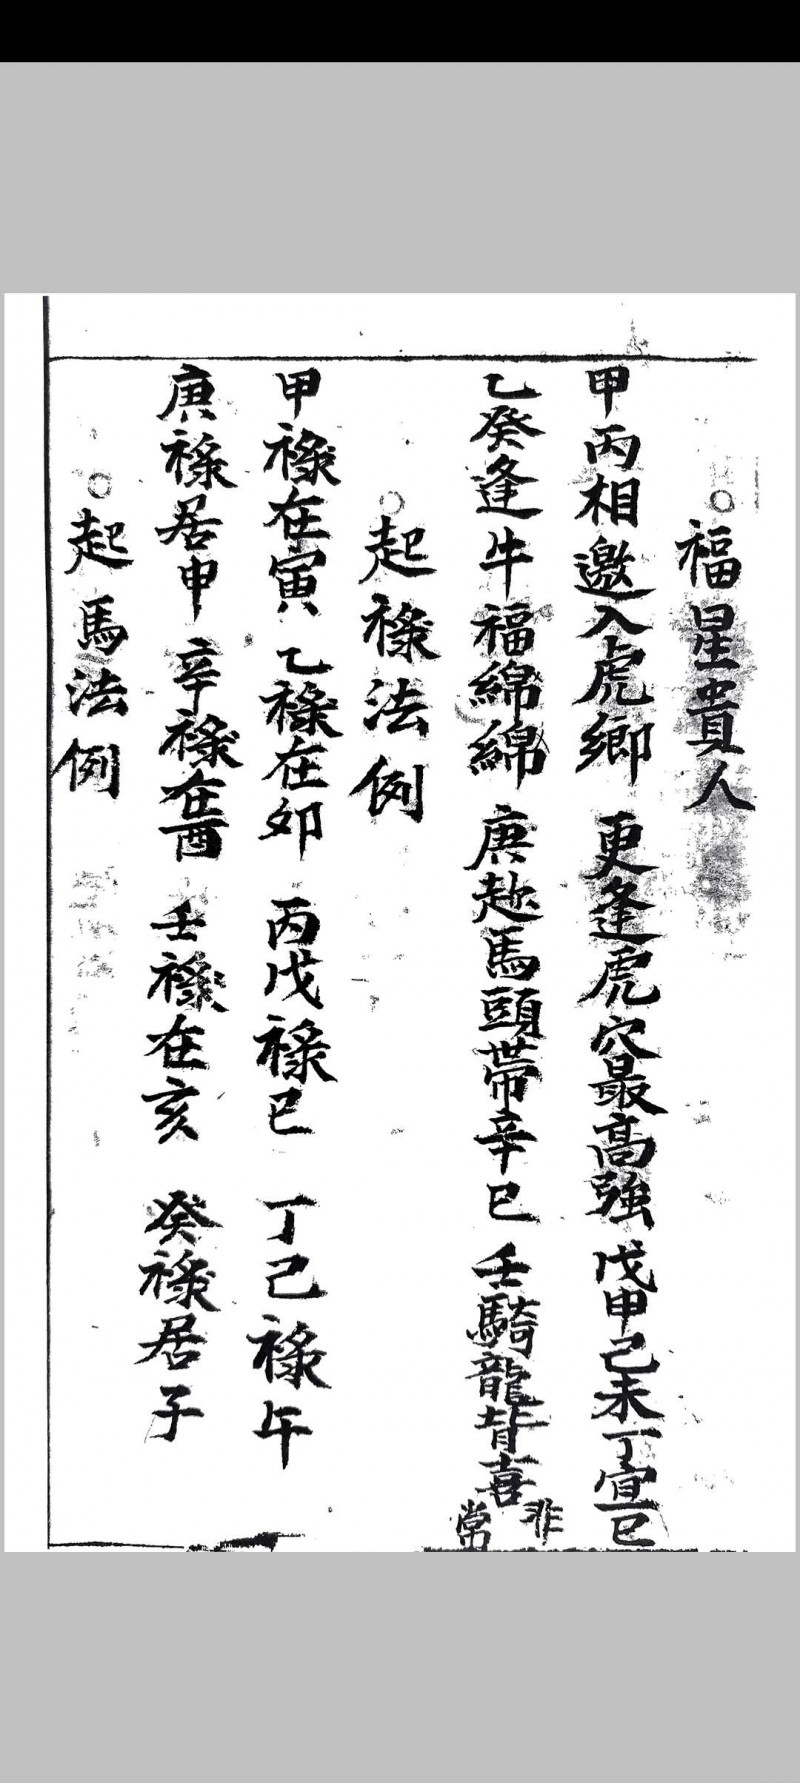 ○福星貴人
甲丙相邀入虎鄉 更逢虎穴最高強 戊申己未丁宜巳
乙癸逢牛福綿綿 庚趁馬頭帶辛巳 壬騎龍背喜非常
○起祿法例
甲祿在寅 乙祿在卯 丙戊祿巳 丁己祿午
庚祿居申 辛祿在酉 壬祿在亥 癸祿居子
○起馬法例